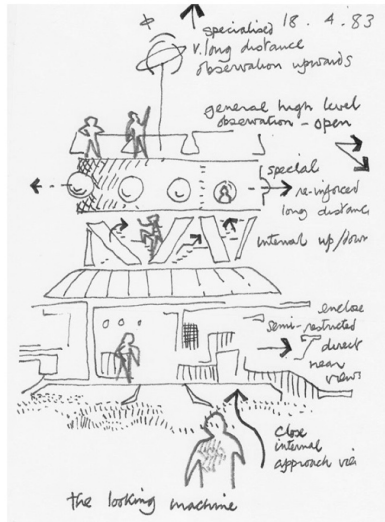 18. 4. 83
specialised
v. long distance
observation upwards
general high level
observation - open
special
re-inforced
long distance
internal up/down
enclose
semi-restricted
direct
near
views
close
internal
approach
the looking machine